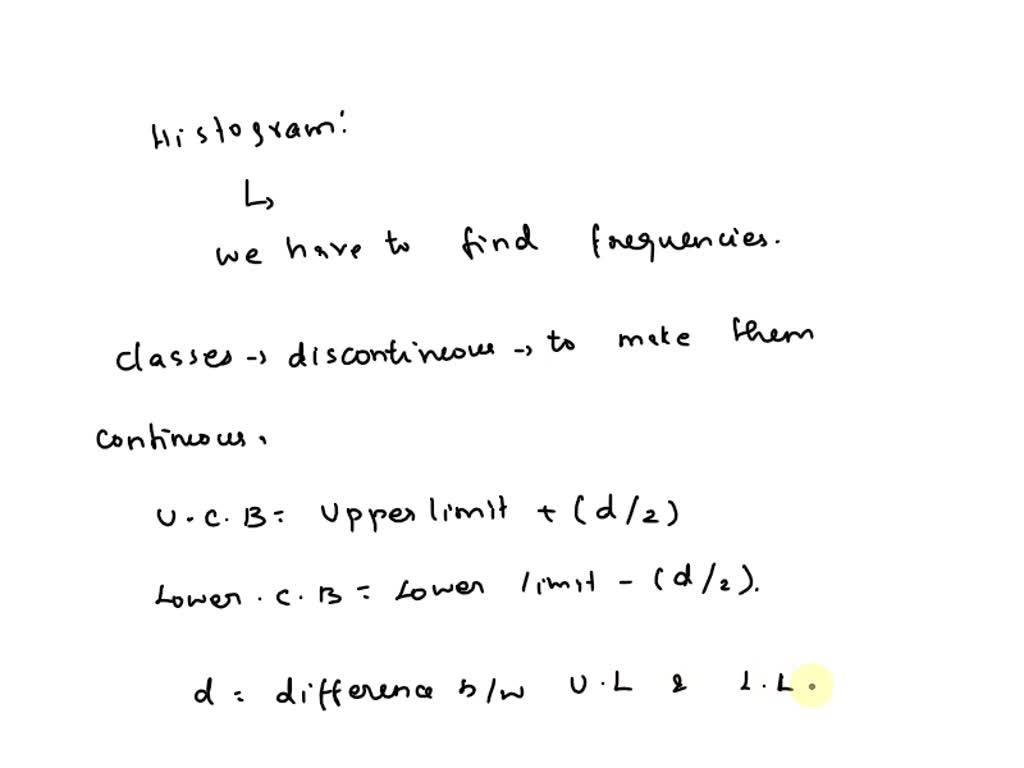 Histogram:
↳
we have to find frequencies.
classes → discontineous → to make them
contineous.
U.C.B = Upper limit + (d/2)
Lower.C.B = Lower limit - (d/2).
d = difference b/w U.L & L.L.